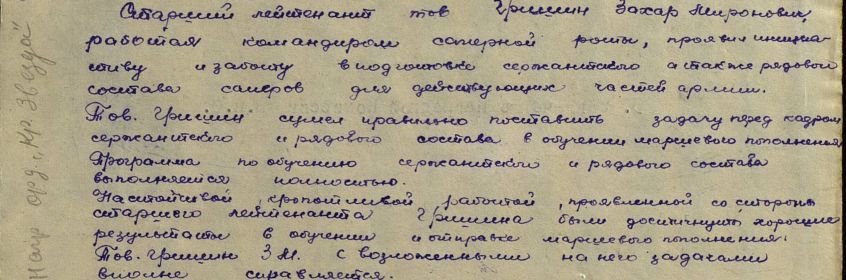 Старший лейтенант тов Гришин Захар Миронович,
работая командиром саперной роты, проявил инициа-
тиву и заботу в подготовке сержантского а также рядового
состава саперов для действующих частей армии.
Тов. Гришин сумел правильно поставить задачу перед кадром
сержантского и рядового состава в обучении маршевого пополнения
Программа по обучению сержантского и рядового состава
выполняется полностью.
Настойчивой, кропотливой работой, проявленной со стороны
старшего лейтенанта Гришина были достигнуты хорошие
результаты в обучении и отправке маршевого пополнения.
Тов. Гришин З М. с возложенными на него задачами
вполне справляется.
Нагр орд. "Кр. Звезда"